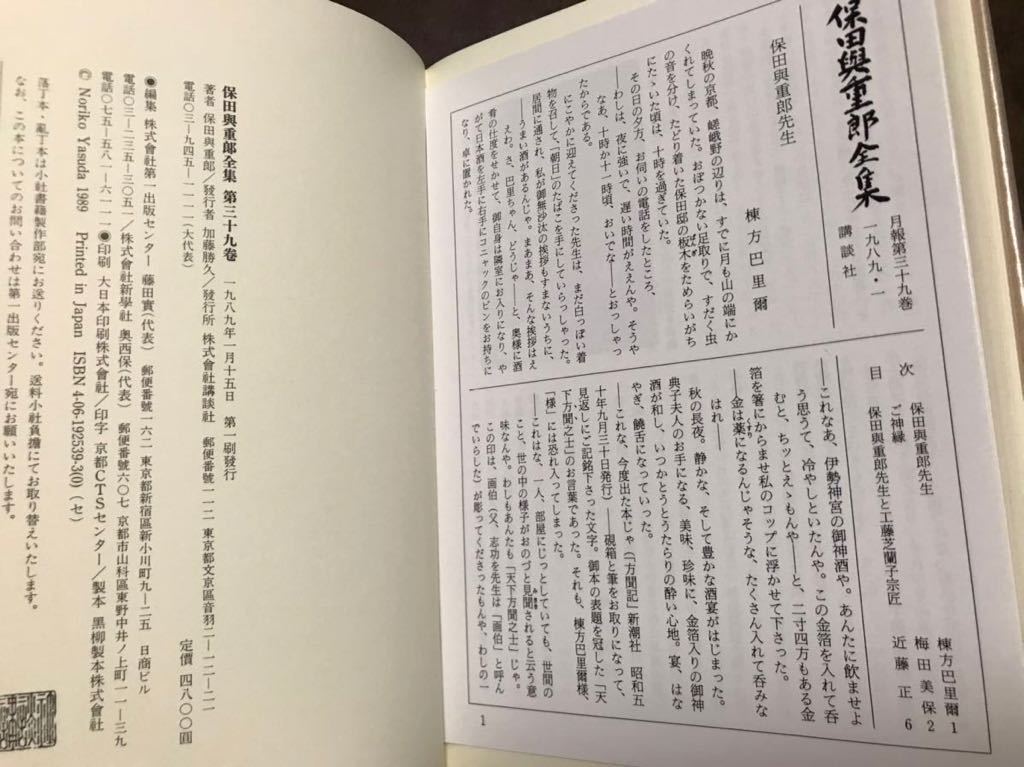 保田與重郎全集
月報第三十九巻
一九八九・一
講談社
保田與重郎先生
棟方巴里爾
晩秋の京都、嵯峨野の辺りは、すでに月も山の端にか
くれてしまっていた。おぼつかない足取りで、すだく虫
の音を分け、たどり着いた保田邸の板木をためらいがち
にたゝいた頃は、十時を過ぎていた。
その日の夕方、お伺いの電話をしたところ、
――わしは、夜に強いで、遅い時間がええんや。そうや
なあ、十時か十一時頃、おいでな――とおっしゃっ
たからである。
にこやかに迎えてくださった先生は、まだ白っぽい着
物を召して、「朝日」のたばこを手にしていらっしゃった。
居間に通され、私が御無沙汰の挨拶もすまないうちに、
――うまい酒があるんじゃ。まあまあ、そんな挨拶はえ
えわ。さ、巴里ちゃん、どうじゃ――と、奥様に酒
肴の仕度をせかせて、御自身は隣室にお入りになり、や
がて日本酒を左手に右手にコニャックのビンをお持ちに
なり、卓に置かれた。
目次
保田與重郎先生 棟方巴里爾 1
ご神縁 梅田美保 2
保田與重郎先生と工藤芝蘭子宗匠 近藤正 6
――これなあ、伊勢神宮の御神酒や。あんたに飲ませよ
う思うて、冷やしといたんや。この金箔を入れて呑
むと、ちッとえゝもんや――と、二寸四方もある金
箔を箸にからませ私のコップに浮かせて下さった。
――金は薬になるんじゃそうな、たくさん入れて呑みな
はれ――
秋の長夜。静かな、そして豊かな酒宴がはじまった。
典子夫人のお手になる、美味、珍味に、金箔入りの御神
酒が和し、いつかとうとうたらりの酔い心地。宴、はな
やぎ、饒舌になっていった。
――これな、今度出た本じゃ(「方聞記」新潮社 昭和五
十年九月三十日発行)――硯箱と筆をお取りになって、
見返しにご記銘下さった文字。御本の表題を冠した「天
下方聞之士」のお言葉であった。それも、棟方巴里爾様、
「様」には恐れ入ってしまった。
――これはな、一人、部屋にじっとしていても、世間の
こと、世の中の様子がおのづと見聞されると云う意
味なんや。わしもあんたも「天下方聞之士」じゃ。
この印は、画伯(父、志功を先生は「画伯」と呼ん
でいらした)が彫ってくださったもんや、わしの一
1
保田與重郎全集 第三十九卷 一九八九年一月十五日 第一刷發行
定價 四八〇〇圓
著者 保田與重郎/發行者 加藤勝久/發行所 株式會社講談社 郵便番號一一二 東京都文京區音羽二―一二―二一
電話〇三―九四五―一一一一(大代表)
●編集 株式會社第一出版センター 藤田實(代表) 郵便番號一六二 東京都新宿區新小川町九―二五 日商ビル
電話〇三―二三五―三〇五一/株式會社新學社 奥西保(代表) 郵便番號六〇七 京都市山科區東野中井ノ上町一一―三九
電話〇七五―五八一―六一一一●印刷 大日本印刷株式會社/印字 京都CTSセンター/製本 黒柳製本株式會社
© Noriko Yasuda 1989 Printed in Japan ISBN 4-06-192539-3(0) (セ)
落丁本・亂丁本は小社書籍製作部宛にお送りください。送料小社負擔にてお取り替えいたします。
なお、この本についてのお問い合わせは第一出版センター宛にお願いいたします。